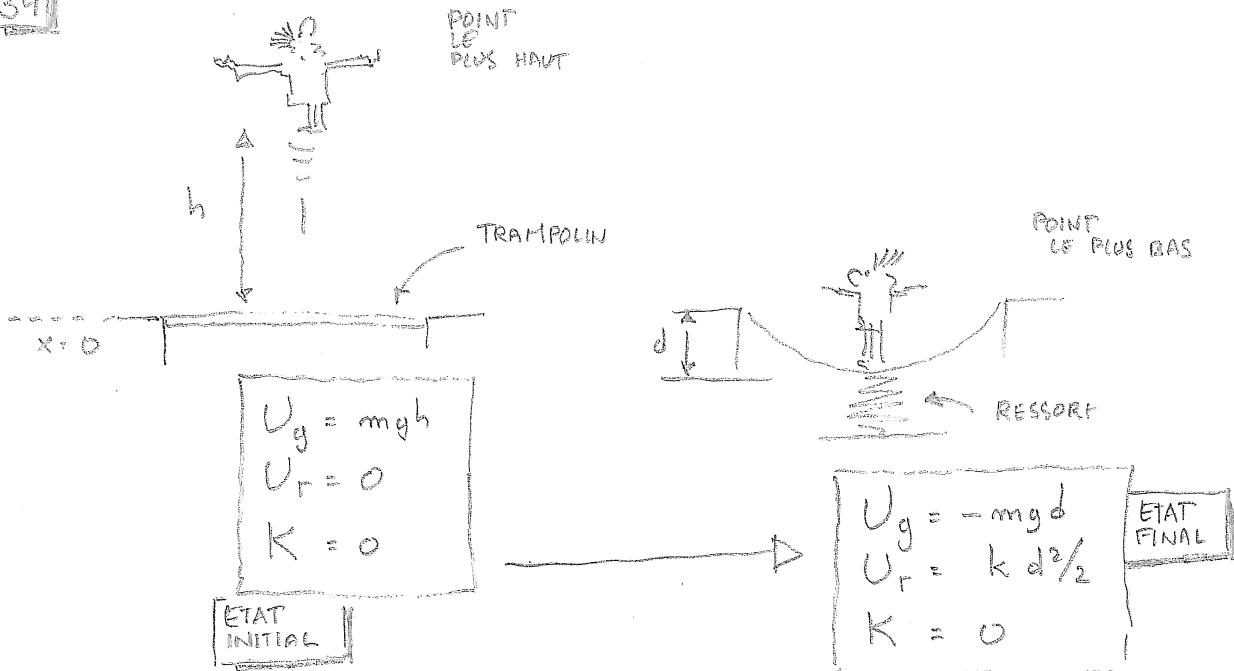 POINT
LE
PLUS HAUT
h
TRAMPOLIN
x = 0
U_g = mgh
U_r = 0
K = 0
ETAT
INITIAL
POINT
LE PLUS BAS
d
RESSORT
U_g = -mgd
U_r = k d²/2
K = 0
ETAT
FINAL